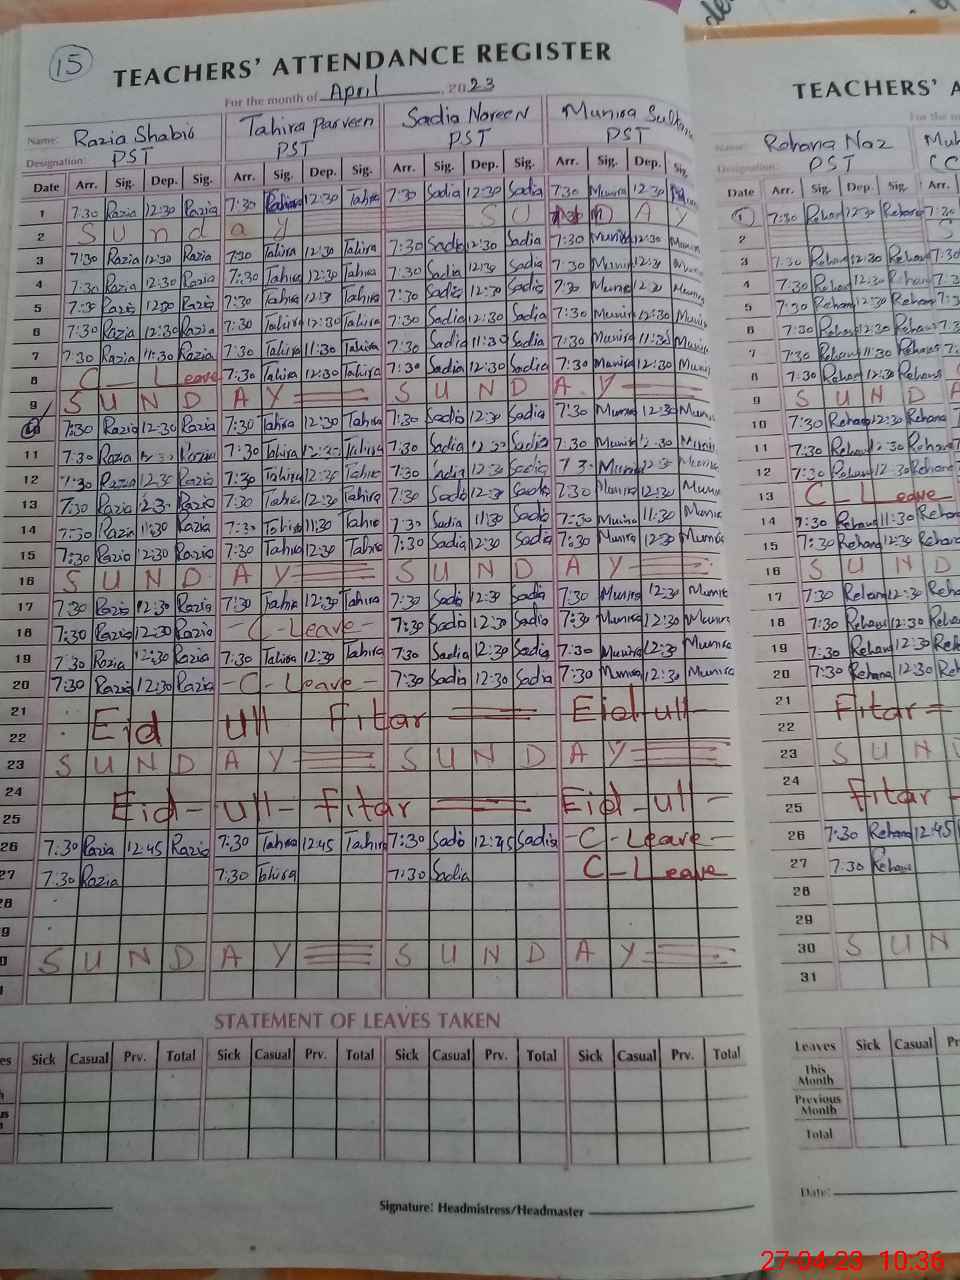 15
TEACHERS' ATTENDANCE REGISTER
For the month of April, 2023
Name: Razia Shabir Tahira Parveen Sadia Noreen Munira Sultana
Designation: PST PST PST PST
Date Arr. Sig. Dep. Sig. Arr. Sig. Dep. Sig. Arr. Sig. Dep. Sig. Arr. Sig. Dep. Sig.
1 7:30 Razia 12:30 Razia 7:30 12:30 Tahira 7:30 Sadia 12:30 Sadia 7:30 Munira 12:30
2 Sunday SU D A Y
3 7:30 Razia 12:30 Razia 7:30 Tahira 12:30 Tahira 7:30 Sadia 12:30 Sadia 7:30 Munira 12:30 Munira
4 7:30 Razia 12:30 Razia 7:30 Tahira 12:30 Tahira 7:30 Sadia 12:30 Sadia 7:30 Munira 12:30 Munira
5 7:30 Razia 12:30 Razia 7:30 Tahira 12:30 Tahira 7:30 Sadia 12:30 Sadia 7:30 Munira 12:30 Munira
6 7:30 Razia 12:30 Razia 7:30 Tahira 12:30 Tahira 7:30 Sadia 12:30 Sadia 7:30 Munira 12:30 Munira
7 7:30 Razia 11:30 Razia 7:30 Tahira 11:30 Tahira 7:30 Sadia 11:30 Sadia 7:30 Munira 11:30 Munira
8 C - Leave 7:30 Tahira 12:30 Tahira 7:30 Sadia 12:30 Sadia 7:30 Munira 12:30 Munira
9 S U N D A Y S U N D A Y
10 7:30 Razia 12:30 Razia 7:30 Tahira 12:30 Tahira 7:30 Sadia 12:30 Sadia 7:30 Munira 12:30 Munira
11 7:30 Razia 12:30 Razia 7:30 Tahira 12:30 Tahira 7:30 Sadia 12:30 Sadia 7:30 Munira 12:30 Munira
12 7:30 Razia 12:30 Razia 7:30 Tahira 12:30 Tahira 7:30 Sadia 12:30 Sadia 7:30 Munira 12:30 Munira
13 7:30 Razia 12:30 Razia 7:30 Tahira 12:30 Tahira 7:30 Sadia 12:30 Sadia 7:30 Munira 12:30 Munira
14 7:30 Razia 11:30 Razia 7:30 Tahira 11:30 Tahira 7:30 Sadia 11:30 Sadia 7:30 Munira 11:30 Munira
15 7:30 Razia 12:30 Razia 7:30 Tahira 12:30 Tahira 7:30 Sadia 12:30 Sadia 7:30 Munira 12:30 Munira
16 S U N D A Y S U N D A Y
17 7:30 Razia 12:30 Razia 7:30 Tahira 12:30 Tahira 7:30 Sadia 12:30 Sadia 7:30 Munira 12:30 Munira
18 7:30 Razia 12:30 Razia - C - Leave - 7:30 Sadia 12:30 Sadia 7:30 Munira 12:30 Munira
19 7:30 Razia 12:30 Razia 7:30 Tahira 12:30 Tahira 7:30 Sadia 12:30 Sadia 7:30 Munira 12:30 Munira
20 7:30 Razia 12:30 Razia - C - Leave - 7:30 Sadia 12:30 Sadia 7:30 Munira 12:30 Munira
21
Eid ull Fitar Eid-ull-
22
23 S U N D A Y S U N D A Y
24
Eid-ull-Fitar Eid-ull-
25
26 7:30 Razia 12:45 Razia 7:30 Tahira 12:45 Tahira 7:30 Sadia 12:45 Sadia - C - Leave -
27 7:30 Razia 7:30 7:30 Sadia C - Leave
S U N D A Y S U N D A Y
STATEMENT OF LEAVES TAKEN
Sick Casual Prv. Total Sick Casual Prv. Total Sick Casual Prv. Total Sick Casual Prv. Total
Signature: Headmistress/Headmaster
TEACHERS'
Name: Rehana Naz
Designation: PST
Date Arr. Sig. Dep. Sig. Arr.
1 7:30 Rehana 12:30 Rehana 7:30
2
3 7:30 Rehana 12:30 Rehana 7:30
4 7:30 Rehana 12:30 Rehana 7:30
5 7:30 Rehana 12:30 Rehana
6 7:30 Rehana 12:30 Rehana
7 7:30 Rehana 11:30 Rehana
8 7:30 Rehana 12:30 Rehana
9 S U N D A
10 7:30 Rehana 12:30 Rehana
11 7:30 Rehana 12:30 Rehana
12 7:30 Rehana 12:30 Rehana
13 C - Leave
14 7:30 Rehana 11:30 Rehana
15 7:30 Rehana 12:30 Rehana
16 S U N D
17 7:30 Rehana 12:30
18 7:30 Rehana 12:30
19 7:30 Rehana 12:30
20 7:30 Rehana 12:30
21 Fitar
22
23 S U N
24 Fitar
25
26 7:30 Rehana 12:45
27 7:30 Rehana
28
29
30 S U N
31
Leaves Sick Casual
This Month
Previous Month
Total
Date:
27-04-23 10:36